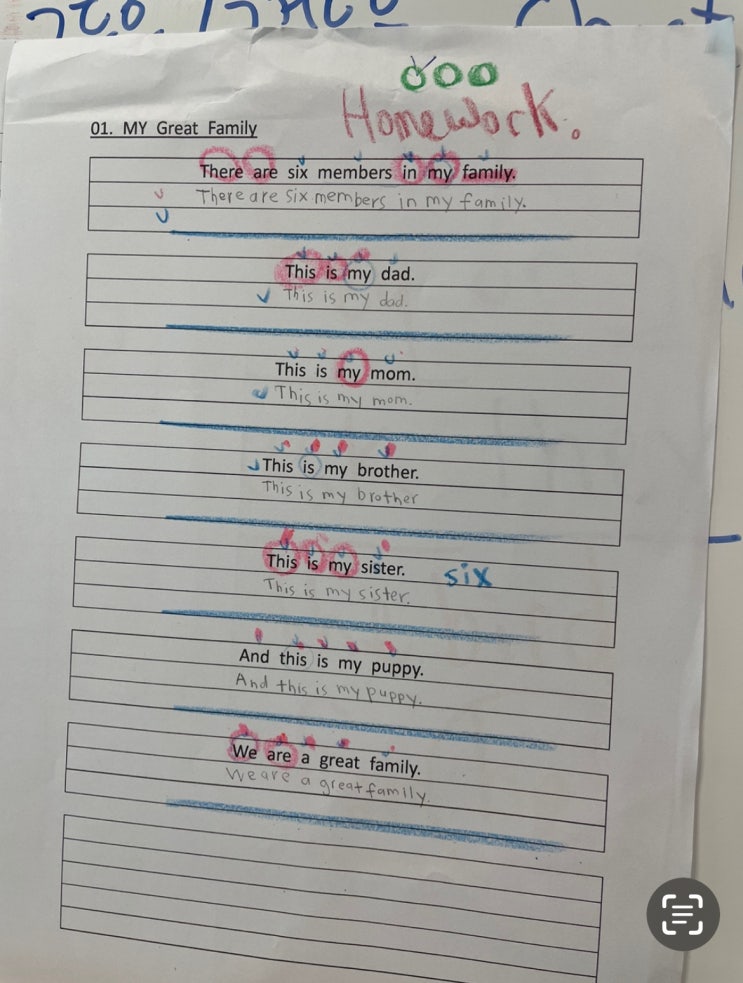 Homework.
01. MY Great Family
There are six members in my family.
There are six members in my family.
This is my dad.
This is my dad.
This is my mom.
This is my mom.
This is my brother.
This is my brother
This is my sister.
six
This is my sister.
And this is my puppy.
And this is my puppy.
We are a great family.
We are a great family.